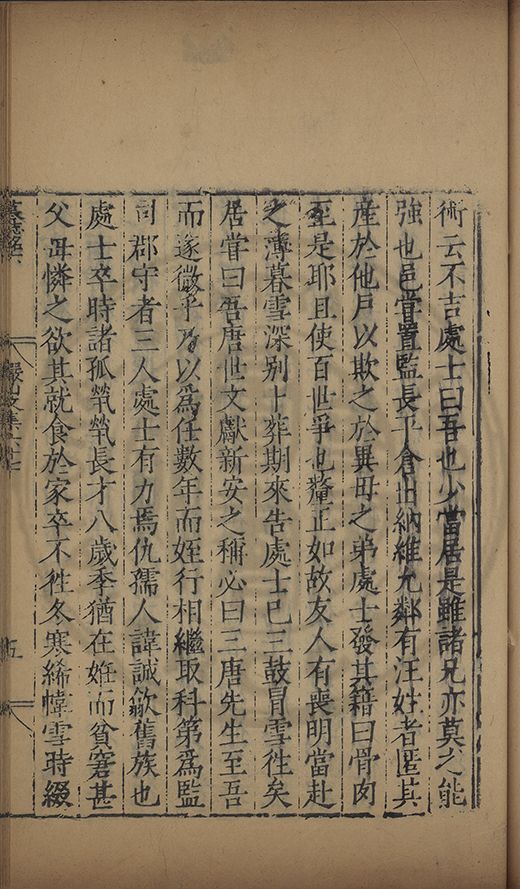 術云不吉處士曰吾也少當居是雖諸兄亦莫之能
強也邑嘗置監長平倉出納維允鄰有汪姓者匿其
産於他戸以欺之於異母之弟處士發其籍曰骨肉
至是耶且使百世爭也釐正如故友人有喪明當赴
之薄暮雪深别卜葬期來告處士已三鼓冒雪徃矣
居嘗曰吾唐世文獻新安之稱必曰三唐先生至吾
而遂微乎乃以爲任數年而姪行相繼取科第爲監
司郡守者三人處士有力焉仇孺人諱誠歙舊族也
處士卒時諸孤煢煢長才八歲季猶在妊而貧窘甚
父毋憐之欲其就食於家卒不徃冬寒絺幃雪時綴
墓誌銘
五